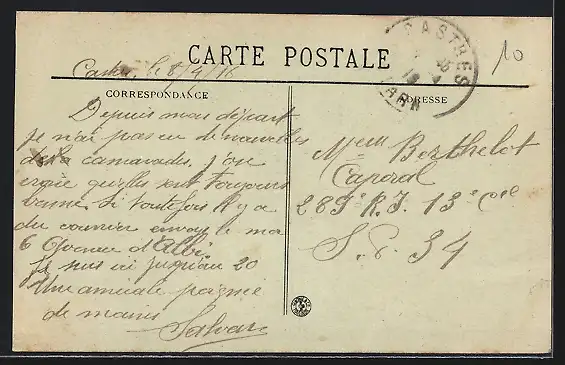 CARTE POSTALE
Castres, le 8/4/16
CORRESPONDANCE
ADRESSE
CASTRES
TARN
10
Depuis mon départ
je n'ai pas eu de nouvelles
des camarades, j'ose
croire qu'elles sont toujours
bonnes. Si toutefois il y a
du courrier envoyez le moi
6 Avenue d'Albi.
Je suis ici jusqu'au 20
Une amicale poignée
de mains
Salvan
Mr Berthelot
Caporal
289e R.I. 13e Cie
S.P. 34